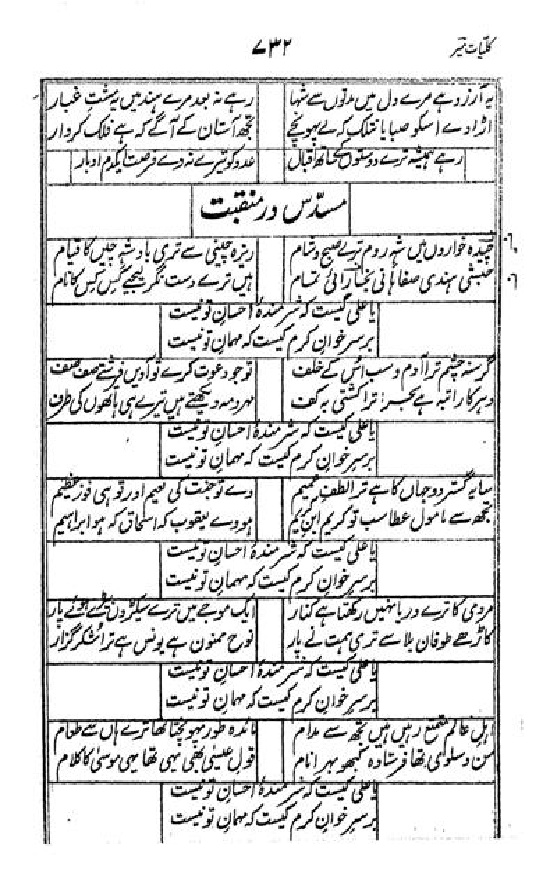 کلیات میر
۷۳۲
یہ آرزو ہے مرے دل میں مدتوں سے شہا رہے نہ بعد مرے ہند میں یہ مشتِ غبار
اڑا دے اسکو صبا یاں تلک کہ لے پہونچے تجھ آستان کے آگے کہ ہے فلک کردار
رہے ہمیشہ ترے دوستوں کے ساتھ اقبال عدو کو تیرے نہ دے فرصت ایکدم ادبار
مسدّس در منقبت
خواروں میں شہِ روم ترے صبح و شام ریزہ چینی سے تری بادشہِ چیں کا قیام
حبشی ہندی صفاہانی بخارائی تمام ہیں ترے دست نگر لیجئے کس کس کا نام
یا علی کیست کہ شرمندۂ احسانِ تو نیست
بر سرِ خوانِ کرم کیست کہ مہمانِ تو نیست
گرسنہ چشم ترا آدم و سب اس کے خلف تو جو دعوت کرے تو آویں فرشتے صف صف
دہر کا راتبہ ہے بحر ترا کشتی بہ کف مہر و مہ دیکھتے ہیں تیرے ہی ہاتھوں کی طرف
یا علی کیست کہ شرمندۂ احسانِ تو نیست
بر سرِ خوانِ کرم کیست کہ مہمانِ تو نیست
سایہ گستر دو جہاں کا ہے ترا لطفِ عمیم دے تو جنت کی نعیم اور تو ہی فوزِ عظیم
تجھ سے مامول عطا سب تو کریم ابن کریم ہووے یعقوب کہ اسحاق کہ ہو ابراہیم
یا علی کیست کہ شرمندۂ احسانِ تو نیست
بر سرِ خوانِ کرم کیست کہ مہمانِ تو نیست
مردمی کا ترے دریا نہیں رکھتا ہے کنار ایک موجے میں ترے سیکڑوں ہوئے پار
کاڑھے طوفانِ بلا سے تری ہمت نے پار نوح ممنون ہے یونس ہے ترا شکر گزار
یا علی کیست کہ شرمندۂ احسانِ تو نیست
بر سرِ خوانِ کرم کیست کہ مہمانِ تو نیست
اہلِ عالم متمتع رہیں ہیں تجھ سے مدام مائدہ طور پہونچتا تھا ترے ہاں سے طعام
من و سلویٰ تھا فرستادہ کبھو بہرِ انام قولِ عیسیٰ بھی یہی تھا یہی موسیٰ کا کلام
یا علی کیست کہ شرمندۂ احسانِ تو نیست
بر سرِ خوانِ کرم کیست کہ مہمانِ تو نیست